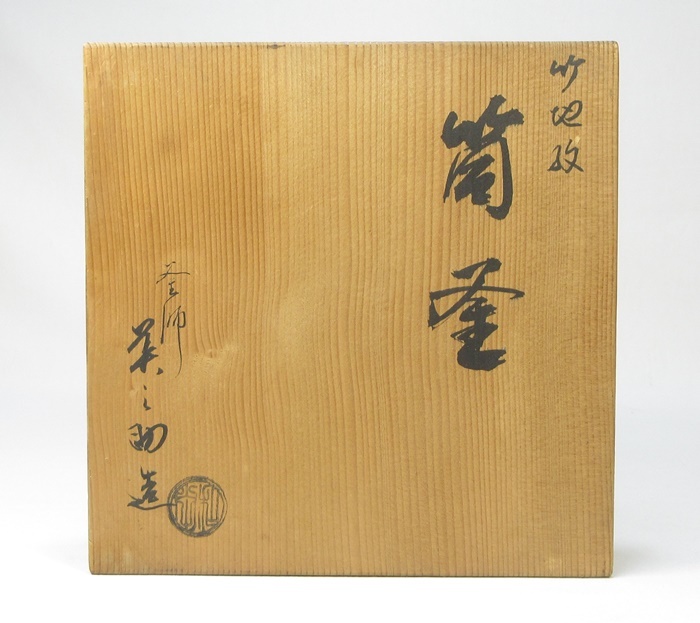 竹地紋
筒釜
釜師
英之助造